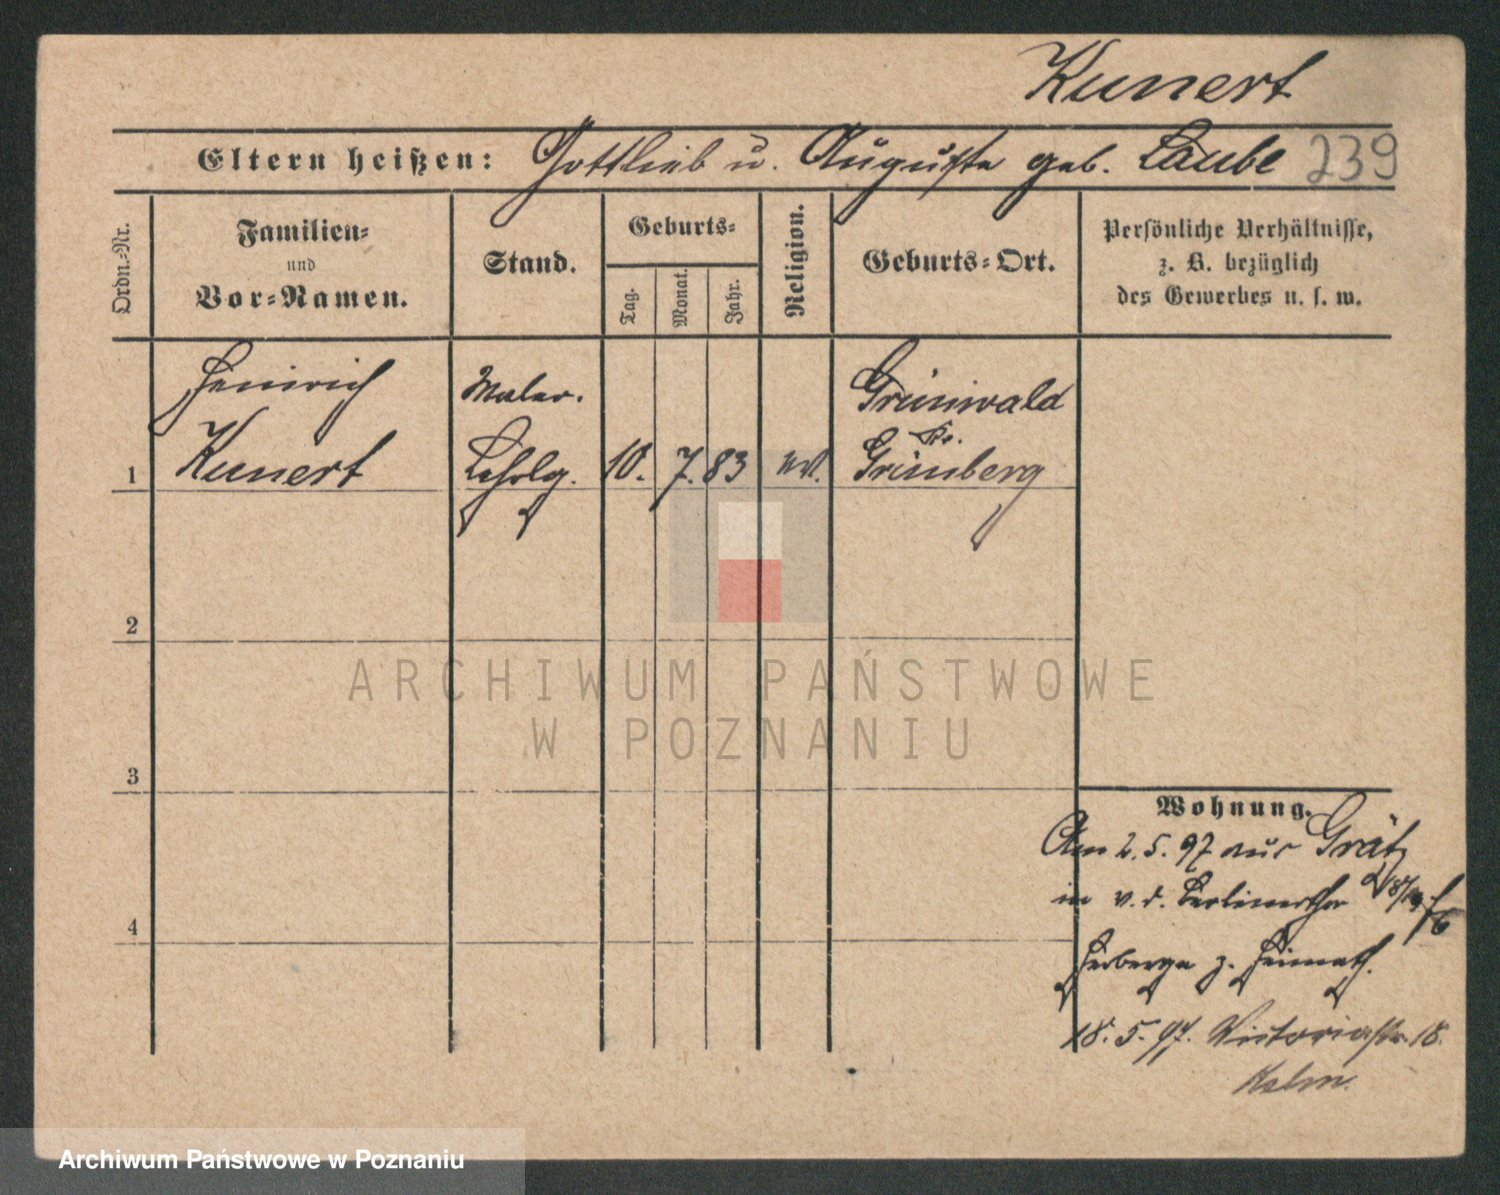 Kunert
Eltern heißen: Gottlieb u. Auguste geb. Laube 239
Ordn.-Nr.
Familien-
und
Vor-Namen.
Stand.
Geburts-
Tag.
Monat.
Jahr.
Religion.
Geburts-Ort.
Persönliche Verhältnisse,
z. B. bezüglich
des Gewerbes u. s. w.
Heinrich Maler. Grünwald
Kr.
1 Kunert Lehrlg. 10. 7. 83 ev. Grünberg
2
ARCHIWUM PAŃSTWOWE
W POZNANIU
3
Wohnung.
Am 2.5.97 aus Grätz
in v. d. Berlinerthor
4
Herberge z. Heimath.
18.5.97. Victoriastr. 18.
Archiwum Państwowe w Poznaniu